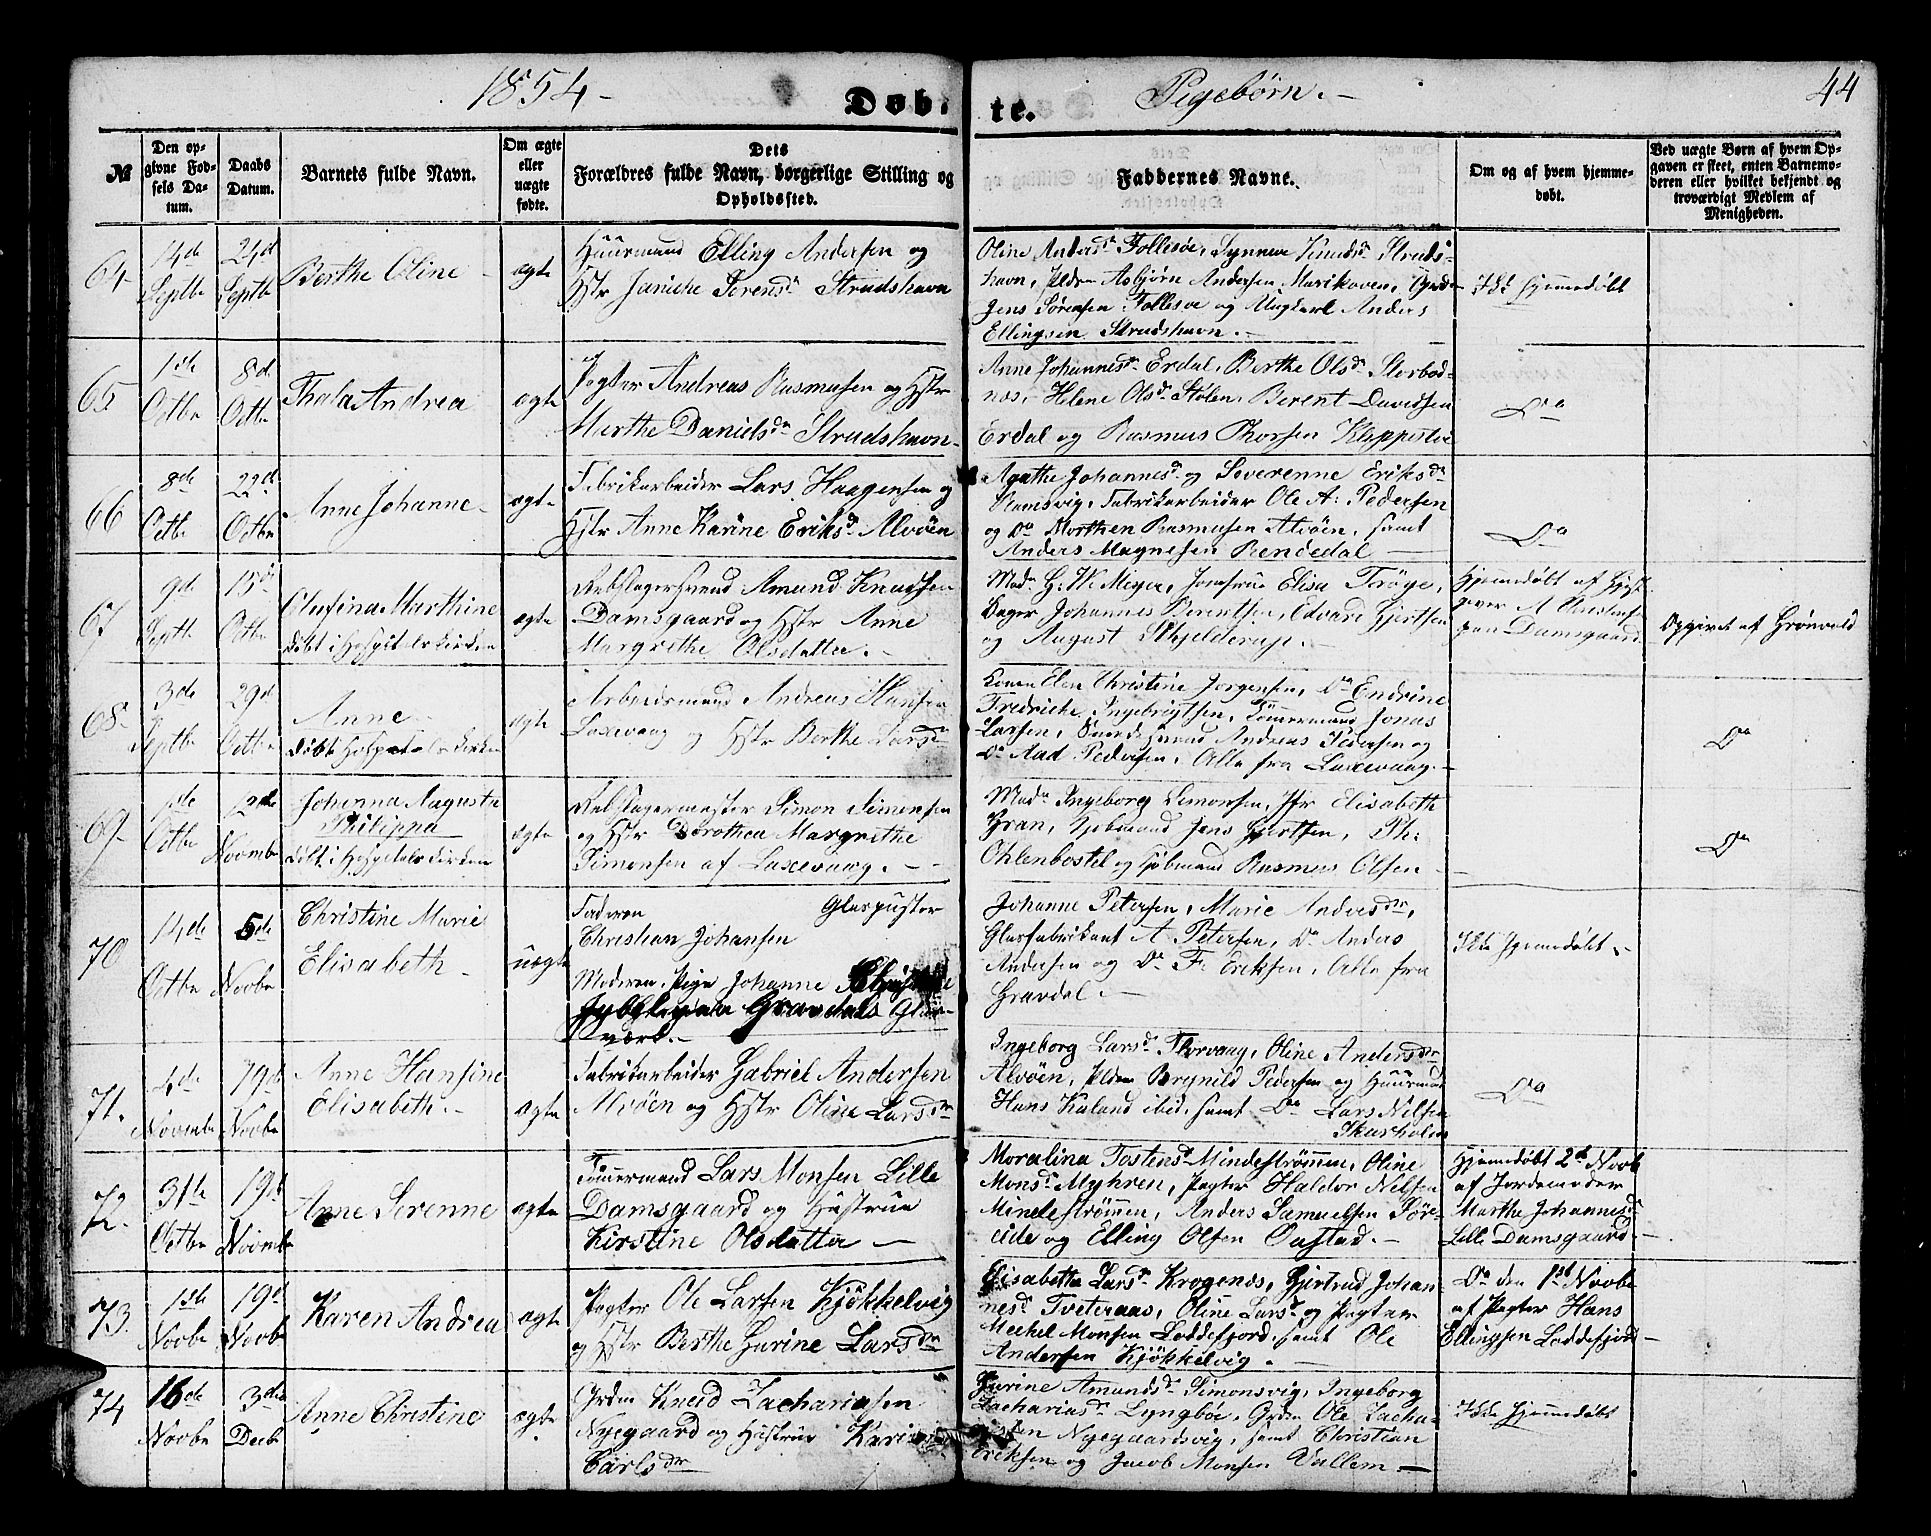 1854 - Døb- te. Pigebørn. - 44
№
Den op-
givne Fød-
sels Da-
tum.
Daabs
Datum.
Barnets fulde Navn.
Om ægte
eller
uægte
fødte.
Dets
Forældres fulde Navn, borgerlige Stilling og
Opholdssted.
Faddernes Navne.
Om og af hvem hjemme-
døbt.
Ved uægte Børn af hvem Op-
gaven er skeet, enten Barnemo-
deren eller hvilket bekjendt og
troværdigt Medlem af
Menigheden.
64
14de
Septbr
24de
Septbr
Berthe Oline -
ægte
Huusmand Elling Andersen og
Hstr Janiche Sørensdr Strudshavn
Oline Andersdr Follesøe, Synneve Knudsdr Struds-
havn, Pldrn Asbjørn Andersen Marikoven, Grdm
Jens Sørensen Follesøe og Ungkarl Anders
Ellingsen Strudshavn. -
Ikke hjemmedøbt
65
1ste
Octbr
8de
Octbr
Thala Andrea
ægte
Pagter Andreas Rasmusen og Hstr
Marthe Danielsdr Strudshavn -
Anne Johannesdr Erdal, Berthe Olsdr Storbod-
nes, Helene Olsdr Stølen, Berent Davidsen
Erdal og Rasmus Thorsen Kleppestøe
Do
66
8de
Octbr
22de
Octbr
Anne Johanne -
ægte
Fabrikarbeider Lars Haagensen og
Hstr Anne Karine Eriksdr Alvøen
Agathe Johannesdr og Severenne Eriksdr
Ramsvig, Fabrikarbeider Ole A: Pedersen
og Do Morthen Rasmusen Alvøen, samt
Anders Magnesen Rendedal -
Do
67
9de
Septbr
15de
Octbr
Olufina Marthine
døbt i Hospitalskirken
ægte
Rebslagersvend Amund Knudsen
Damsgaard og Hstr Anne
Margrethe Olsdatter. -
Madm G: W. Meyer, Jomfrue Elisa Trøye,
Bager Johannes Berentsen, Edvard Gjertsen
og August Schjelderup. -
Hjemmedøbt af
Damsgaard
Opgivet af Grønvold
68
3de
Septbr
29de
Octbr
Anne -
døbt Hospitalskirken
ægte
Arbeidsmand Andreas Hansen
Laxevaag og Hstr Berthe Larsdr
Konen Elen Christine Jørgensen, Do Endrine
Fredrikke Ingebrigtsen, Tømmermand Jonas
Larsen, Andreas Pedersen og
Do Aad Pedersen, Alle fra Laxevaag. -
Do
69
1de
Octbr
12de
Novmbr
Johanna Augusta
Philippa
døbt i Hospitalskirken
ægte
Rebslagermester Simon Simonsen
og Hstr Dorothea Margrethe
Simonsen af Laxevaag. -
Madm Ingeborg Simonsen, Jfr Elisabeth
Gran, Kjøbmand Jens Gjertsen, Ph:
Ohlenbostel og Kjøbmand Rasmus Olsen -
Do
70
14de
Octbr
5de
Novbr
Christine Marie
Elisabeth -
uægte
Faderen Glaspuster
Christian Johansen
Moderen, Pige Johanne
Gravdals Glas-
værk. -
Johanne Petersen, Marie Andersdr,
Glasfabrikant A Petersen, Do Anders
Andersen og Do F: Eriksen, Alle fra
Gravdal. -
Ikke hjemmedøbt. -
71.
4de
Novmbr
19de
Novbr
Anne Hansine
Elisabeth. -
ægte
Fabrikarbeider Gabriel Andersen
Alvøen og Hstr Oline Larsdr
Ingeborg Larsdr Florvaag, Oline Andersdr
Alvøen, Pldrn Brynild Pedersen og Huusmand
Hans Kaland ibid, samt Do Lars Nilsen
Skarholm
Do
72.
31te
Octbr
19de
Novmbr
Anne Serenne
ægte
Tømmermand Lars Monsen Lille
Damsgaard og Hustrue
Kirstine Olsdatter -
Moralina Tostensdr Mindestrømmen, Oline
Monsdr Myhren, Pagter Haldor Nilsen
Mindestrømmen, Anders Samuelsen Søre-
eide og Elling Olsen Oastad. -
Hjemmedøbt 2de Novbr
af Jordemoder
Marthe Johannesdr
Lille Damsgaard -
73.
1ste
Novbr
19de
Novbr
Karen Andrea
ægte
Pagter Ole Larsen Kjøkkelvig
og Hstr Berthe Gurine Larsdr
Elisabethe Larsdr Krogenes, Gjertrud Johan-
nesdr Tveteraas, Oline Larsdr og Pagter
Mechel Monsen Loddefjord, samt Ole
Andersen Kjøkkelvig. -
Do den 1ste Novbr
af Pagter Hans
Ellingsen Loddefjord -
74
16de
Novbr
3die
Decbr
Anne Christine
ægte
Grdm Knud Zachariasen
Nygaard og Hustrue Karin
Carlsdr
Gurine Amundsdr Simonsvig, Ingeborg
Zachariasdr Lyngbøe, Grdm Ole Zacha-
Nygaardsvig, samt Christian
Eriksen og Jacob Monsen Vallem -
Ikke hjemmedøbt